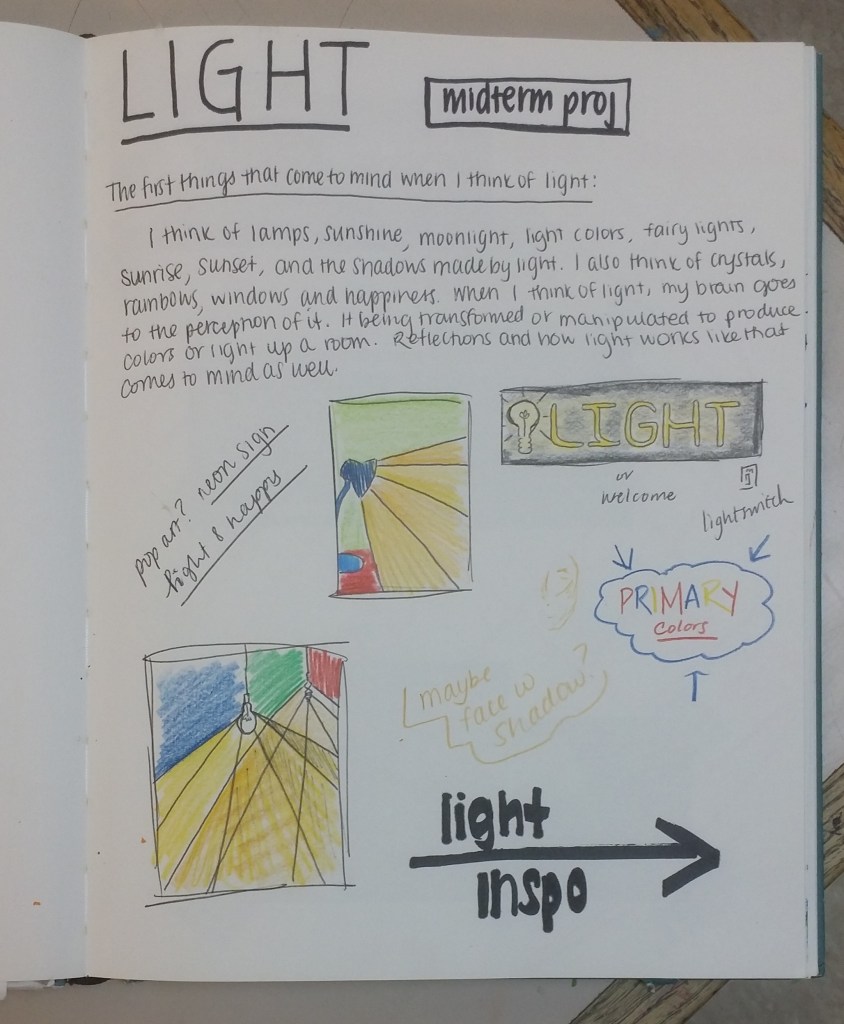 LIGHT
midterm proj
The first things that come to mind when I think of light:
I think of lamps, sunshine, moonlight, light colors, fairy lights,
sunrise, sunset, and the shadows made by light. I also think of crystals,
rainbows, windows and happiness. When I think of light, my brain goes
to the perception of it. It being transformed or manipulated to produce
colors or light up a room. Reflections and how light works like that
comes to mind as well.
pop art? neon sign
light & happy
LIGHT
or
welcome
lightswitch
PRIMARY
colors
maybe
face w
shadow?
light
inspo